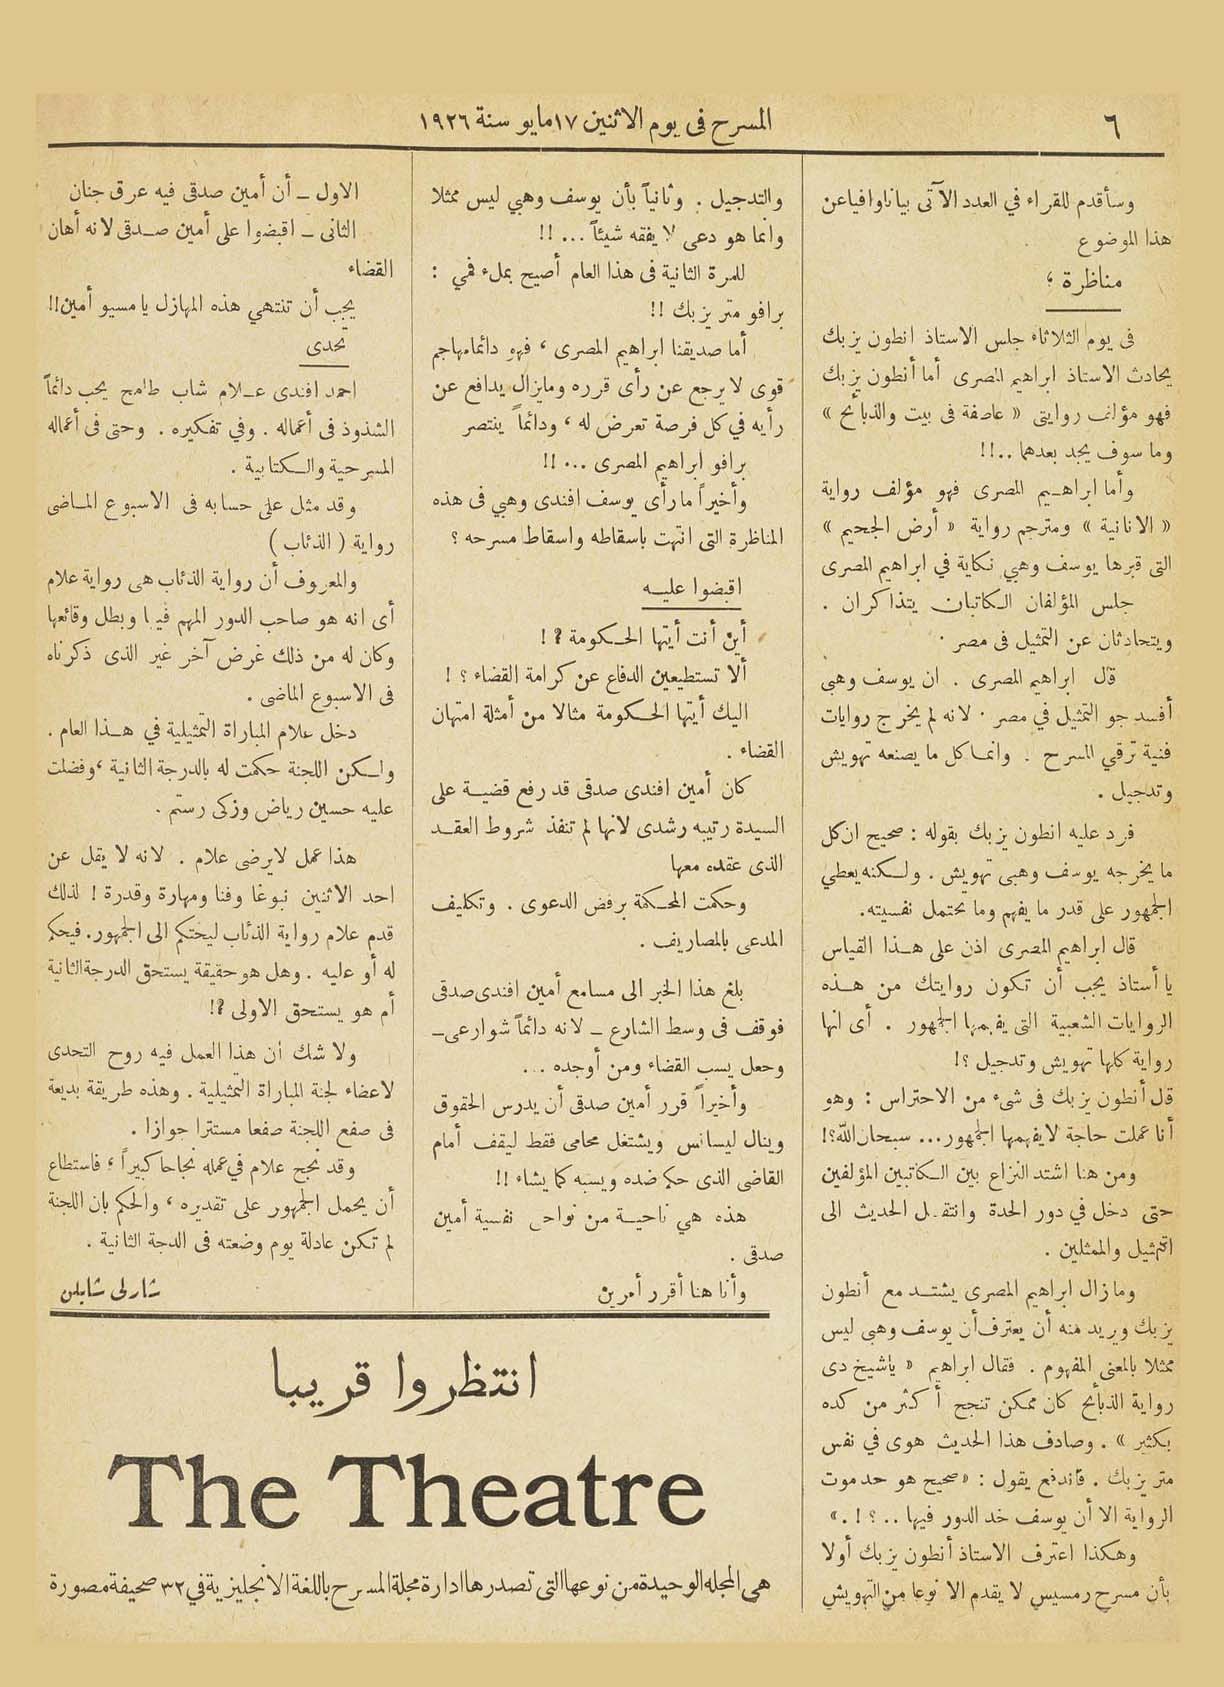 ٦
المسرح فى يوم الاثنين ١٧ مايو سنة ١٩٢٦
وسأقدم للقراء في العدد الآتى بياناوافياعن
هذا الموضوع
مناظرة ؛
فى يوم الثلاثاء جلس الاستاذ انطون يزبك
يحادث الاستاذ ابراهيم المصرى أما أنطون يزبك
فهو مؤلف روايتى « عاصفة فى بيت والذبائح »
وما سوف يجد بعدهما ..!!
وأما ابراهيم المصرى فهو مؤلف رواية
« الانانية » ومترجم رواية « أرض الجحيم »
التى قبرها يوسف وهبي نكاية في ابراهيم المصرى
جلس المؤلفان الكاتبان يتذاكران .
ويتحادثان عن التمثيل فى مصر .
قال ابراهيم المصرى . ان يوسف وهبى
أفسد جو التمثيل في مصر . لانه لم يخرج روايات
فنية ترقي المسرح . وانما كل ما يصنعه تهويش
وتدجيل .
فرد عليه انطون يزبك بقوله : صحيح ان كل
ما يخرجه يوسف وهبى تهويش . ولكنه يعطي
الجمهور على قدر ما يفهم وما تحتمل نفسيته.
قال ابراهيم المصرى اذن على هذا القياس
يا أستاذ يجب أن تكون روايتك من هذه
الروايات الشعبية التى يفهمها الجمهور . أى انها
رواية كلها تهويش وتدجيل ؟!
قال أنطون يزبك فى شىء من الاحتراس : وهو
أنا عملت حاجة لايفهمها الجمهور... سبحان الله؟!
ومن هنا اشتد النزاع بين الكاتبين المؤلفين
حتى دخل في دور الحدة وانتقل الحديث الى
التمثيل والممثلين .
وما زال ابراهيم المصرى يشتد مع أنطون
يزبك ويريد منه أن يعترف أن يوسف وهبى ليس
ممثلا بالمعنى المفهوم . فقال ابراهيم « ياشيخ دى
رواية الذبائح كان ممكن تنجح أكثر من كده
بكثير » . وصادف هذا الحديث هوى في نفس
متر يزبك . فاندفع يقول : «صحيح هو حد موت
الرواية الا أن يوسف خد الدور فيها .. ؟ ! .»
وهكذا اعترف الاستاذ أنطون يزبك أولا
بأن مسرح رمسيس لا يقدم الا نوعا من التهويش
والتدجيل . وثانياً بأن يوسف وهبي ليس ممثلا
وانما هو دعى لا يفقه شيئاً ... !!
للمرة الثانية فى هذا العام أصيح بملء فمي :
برافو متر يزبك !!
أما صديقنا ابراهيم المصرى ، فهو دائما مهاجم
قوى لا يرجع عن رأى قرره ومايزال يدافع عن
رأيه في كل فرصة تعرض له ، ودائماً ينتصر
برافو ابراهيم المصرى ... !!
وأخيراً ما رأى يوسف افندى وهبي فى هذه
المناظرة التى انتهت باسقاطه واسقاط مسرحه ؟
اقبضوا عليه
أين أنت أيتها الحكومة ؟ !
ألا تستطيعين الدفاع عن كرامة القضاء ؟ !
اليك أيتها الحكومة مثالا من أمثلة امتهان
القضاء .
كان أمين افندى صدقى قد رفع قضية على
السيدة رتيبه رشدى لانها لم تنفذ شروط العقد
الذى عقده معها
وحكمت المحكمة برفض الدعوى . وتكليف
المدعى بالمصاريف .
بلغ هذا الخبر الى مسامع أمين افندى صدقى
فوقف فى وسط الشارع ــ لانه دائماً شوارعى ــ
وجعل يسب القضاء ومن أوجده ...
وأخيراً قرر أمين صدقى أن يدرس الحقوق
وينال ليسانس ويشتغل محامى فقط ليقف أمام
القاضى الذى حكم ضده ويسبه كما يشاء !!
هذه هي ناحية من نواحى نفسية أمين
صدقى .
وأنا هنا أقرر أمرين
الاول ــ أن أمين صدقى فيه عرق جنان
الثانى ــ اقبضوا على أمين صدقى لانه أهان
القضاء
يجب أن تنتهي هذه المهازل يا مسيو أمين!!
تحدى
احمد افندى علام شاب طامح يحب دائماً
الشذوذ فى أعماله . وفي تفكيره . وحتى فى أعماله
المسرحية والكتابية .
وقد مثل على حسابه فى الاسبوع الماضى
رواية ( الذئاب )
والمعروف أن رواية الذئاب هى رواية علام
أى انه هو صاحب الدور المهم فيها وبطل وقائعها
وكان له من ذلك غرض آخر غير الذى ذكرناه
فى الاسبوع الماضى .
دخل علام المباراة التمثيلية في هذا العام .
ولكن اللجنة حكمت له بالدرجة الثانية ، وفضلت
عليه حسين رياض وزكى رستم .
هذا عمل لايرضى علام . لانه لا يقل عن
احد الاثنين نبوغا وفنا ومهارة وقدرة ! لذلك
قدم علام رواية الذئاب ليحتكم الى الجمهور. فيحكم
له أو عليه . وهل هو حقيقة يستحق الدرجة الثانية
أم هو يستحق الاولى ؟!
ولا شك ان هذا العمل فيه روح التحدى
لاعضاء لجنة المباراة التمثيلية . وهذه طريقة بديعة
فى صفع اللجنة صفعا مستترا جوازا .
وقد نجح علام في عمله نجاحا كبيراً ؛ فاستطاع
أن يحمل الجمهور على تقديره ، والحكم بان اللجنة
لم تكن عادلة يوم وضعته فى الدجة الثانية .
شارلى شابلن
انتظروا قريبا
The Theatre
هى المجله الوحيدة من نوعها التى تصدرها ادارة مجلة المسرح باللغة الانجليزية في ٣٢ صحيفة مصورة